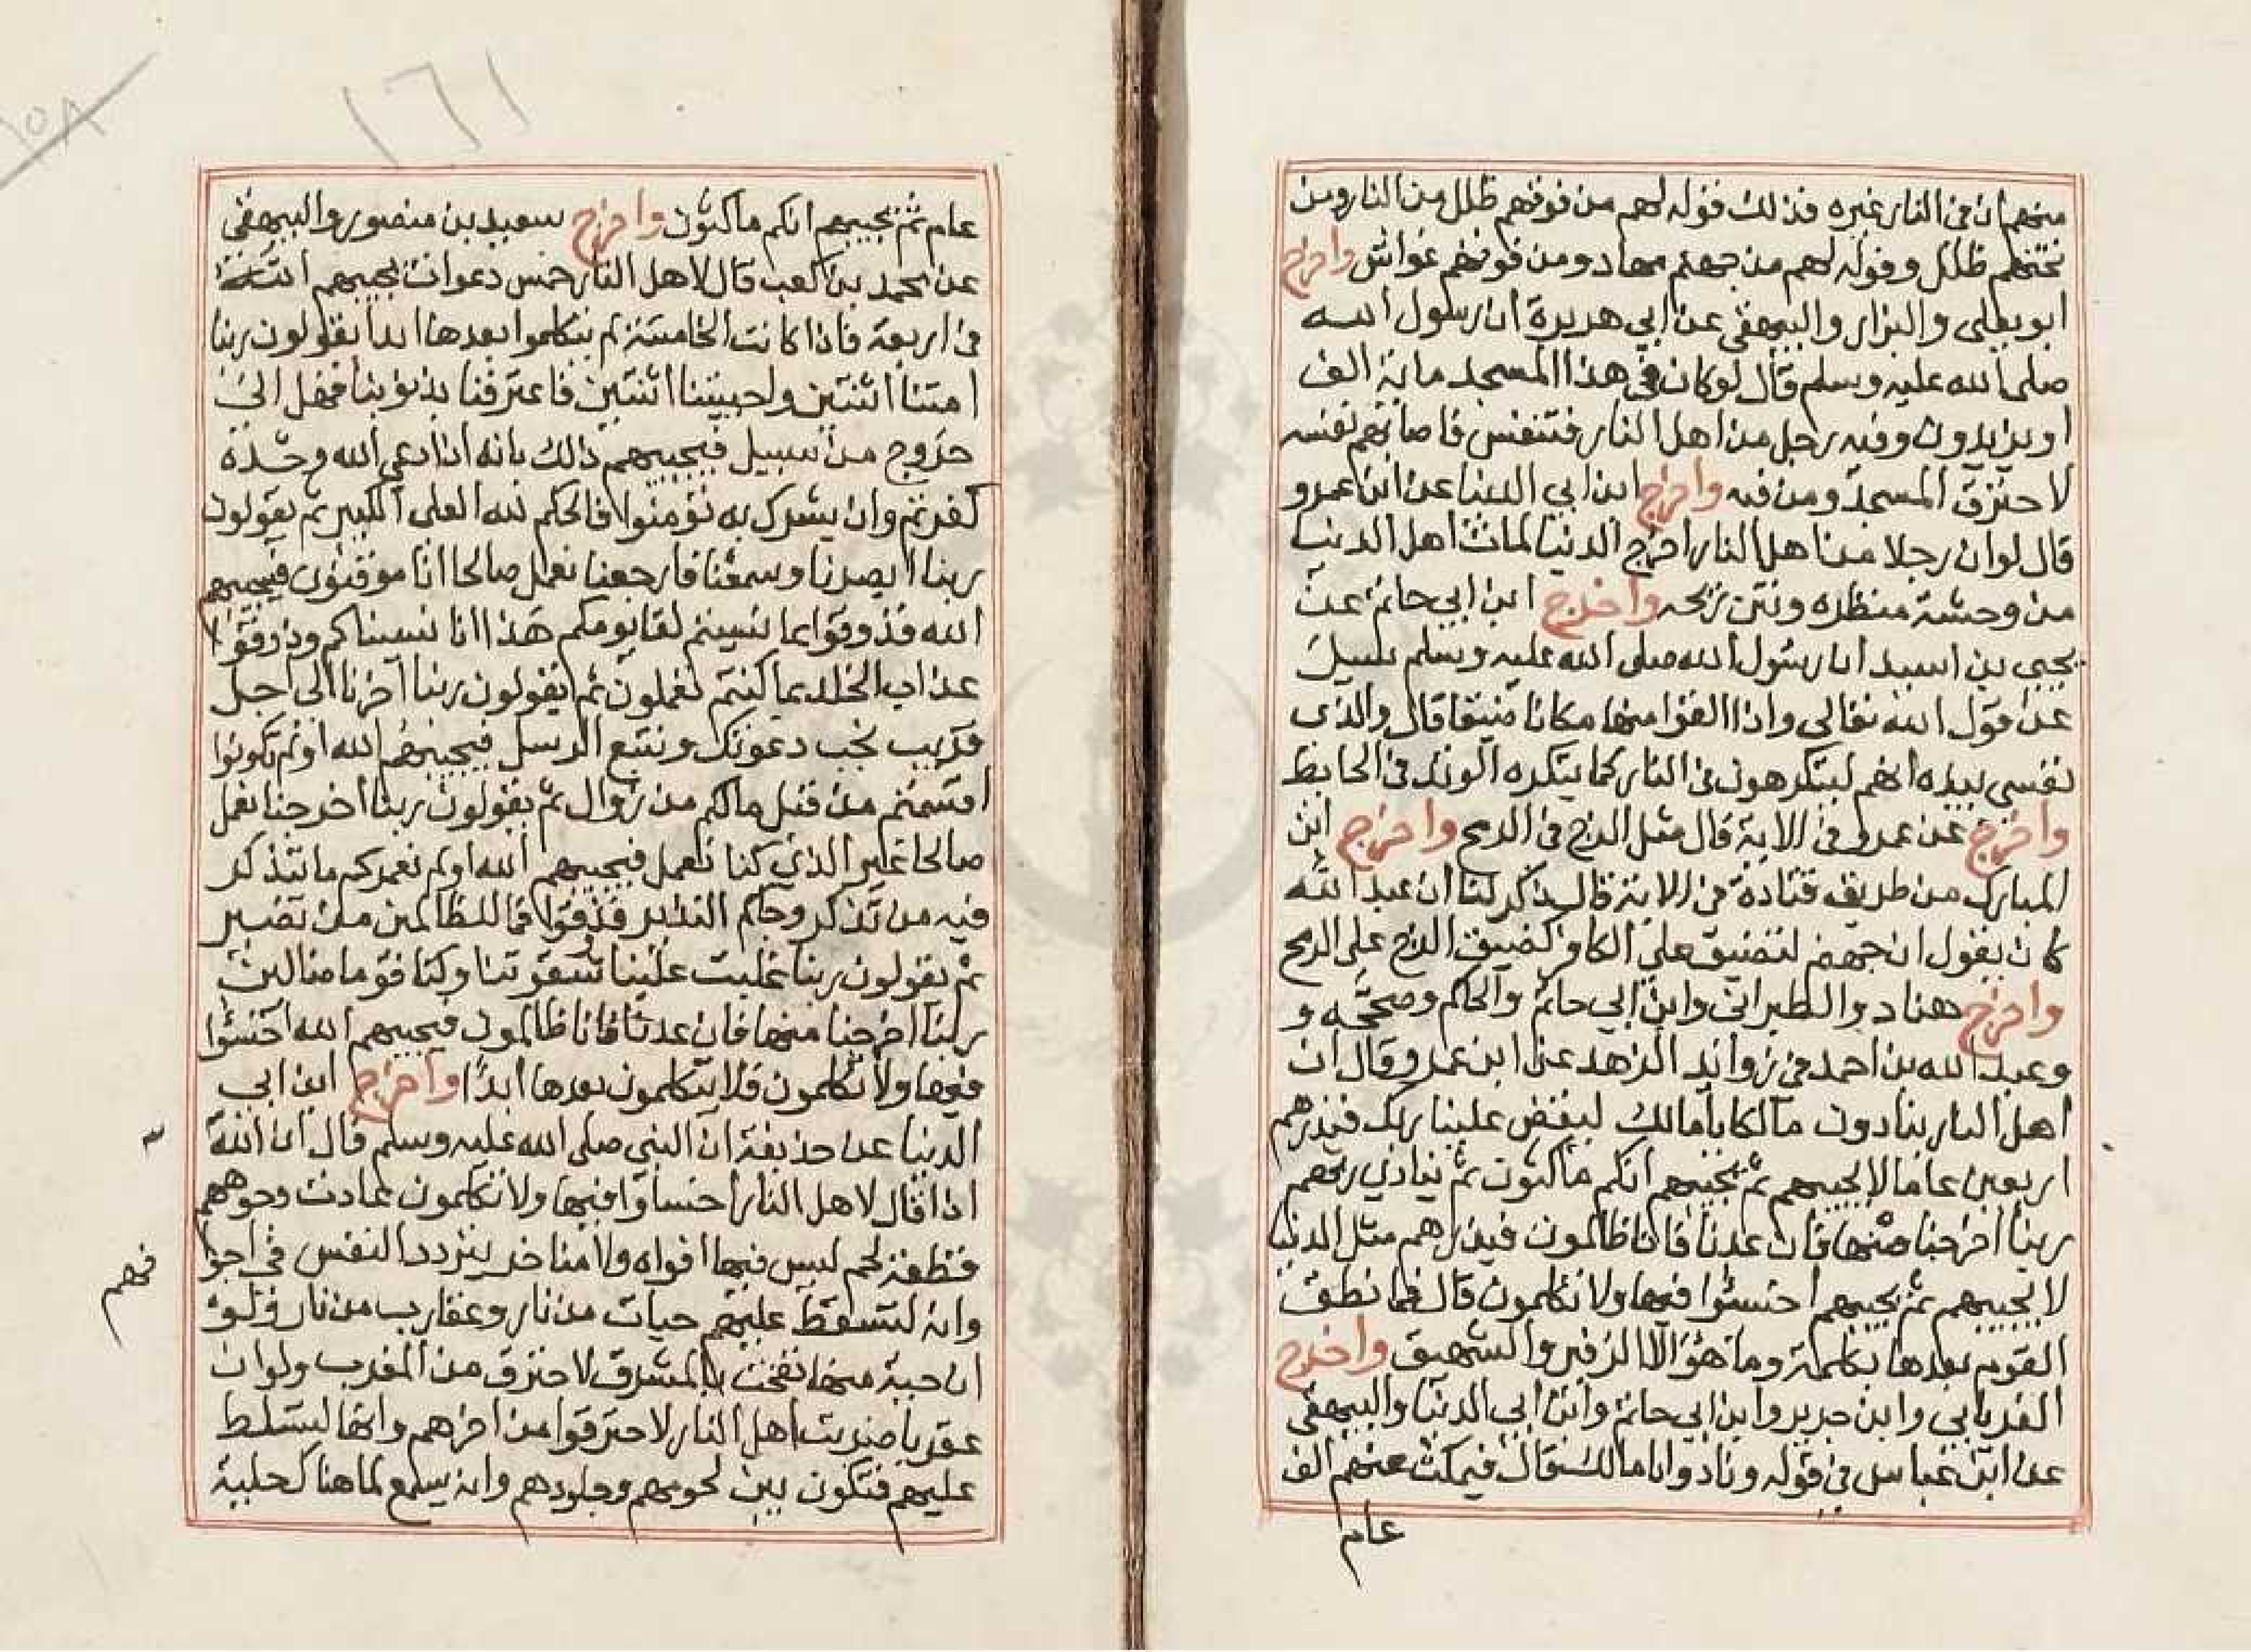 منهم ان في النار غيره فذلك قوله لهم من فوقهم ظلل من النار ومن
تحتهم ظلل وقوله لهم من جهنم مهاد ومن فوقهم غواش واخرج
ابو يعلى والبزار والبيهقي عن ابي هريرة ان رسول الله
صلى الله عليه وسلم قال لو كان في هذا المسجد ماية الف
او يزيدون وفيه رجل من اهل النار فتنفس فاصابهم نفسه
لاحترق المسجد ومن فيه واخرج ابن ابي الدنيا عن ابن عمرو
قال لو ان رجلا من اهل النار اخرج الدنيا لمات اهل الدنيا
من وحشة منظره ونتن ريحه واخرج ابن ابي حاتم عن
يحيى بن اسيد ان رسول الله صلى الله عليه وسلم سيل
عن قول الله تعالى واذا القوا منها مكانا ضيقا قال والذي
نفسي بيده انهم ليتكرهون في النار كما يتكره الوتد في الحايط
واخرج عن عمرو في الاية قال مثل الزج في الرمح واخرج ابن
المبارك من طريق قتادة في الاية قال ذكر لنا ان عبد الله
كان يقول ان جهنم لتضيق على الكافر كضيق الزج على الرمح
واخرج هناد والطبراني وابن ابي حاتم والحاكم وصححه و
وعبد الله بن احمد في زوايد الزهد عن ابن عمرو قال ان
اهل النار ينادون مالكا يامالك ليقض علينا ربك فيذرهم
اربعين عاما لا يجيبهم ثم يجيبهم انكم ماكثون ثم ينادي ربهم
ربنا اخرجنا منها فان عدنا فانا ظالمون فيذرهم مثل الدنيا
لا يجيبهم ثم يجيبهم اخسئوا فيها ولا تكلمون قال فما نطق
القوم بعدها بكلمة وما هو الا الزفير والشهيق واخرج
الفريابي وابن جرير وابن ابي حاتم وابن ابي الدنيا والبيهقي
عن ابن عباس في قوله ونادوا يامالك قال فيمكث عنهم الف
عام
١٦١
١٥٨
عام ثم يجيبهم انكم ماكثون واخرج سعيد بن منصور والبيهقي
عن محمد بن كعب قال لاهل النار خمس دعوات يجيبهم الله
في اربعة فاذا كانت الخامسة لم يتكلموا بعدها ابدا يقولون ربنا
امتنا اثنتين واحييتنا اثنتين فاعترفنا بذنوبنا فهل الى
خروج من سبيل فيجيبهم ذلك بانه اذا دعي الله وحده
كفرتم وان يشرك به تؤمنوا فالحكم لله العلي الكبير ثم يقولون
ربنا ابصرنا وسمعنا فارجعنا نعمل صالحا انا موقنون فيجيبهم
الله فذوقوا بما نسيتم لقا يومكم هذا انا نسيناكم وذوقوا
عذاب الخلد بما كنتم تعملون ثم يقولون ربنا اخرنا الى اجل
قريب نجب دعوتك ونتبع الرسل فيجيبهم الله اولم تكونوا
اقسمتم من قبل مالكم من زوال ثم يقولون ربنا اخرجنا نعمل
صالحا غير الذي كنا نعمل فيجيبهم الله اولم نعمركم ما يتذكر
فيه من تذكر وجاكم النذير فذوقوا فما للظالمين من نصير
ثم يقولون ربنا غلبت علينا شقوتنا وكنا قوما ضالين
ربنا اخرجنا منها فان عدنا فانا ظالمون فيجيبهم الله اخسئوا
فيها ولا تكلمون فلا يتكلمون بعدها ابدا واخرج ابن ابي
الدنيا عن حذيفة ان النبي صلى الله عليه وسلم قال ان الله
اذا قال لاهل النار اخسأوا فيها ولا تكلمون عادت وجوههم
قطعة لحم ليس فيها افواه ولا مناخر يتردد النفس في اجوا
فهم
وانه لتسقط عليهم حيات من نار وعقارب من نار فلو
ان حية منها نفخت بالمشرق لاحترق من المغرب ولو ان
عقربا ضربت اهل النار لاحترقوا من اخرهم وانها لتسلط
عليهم فتكون بين لحومهم وجلودهم وانه يسمع لما هناك جلبة